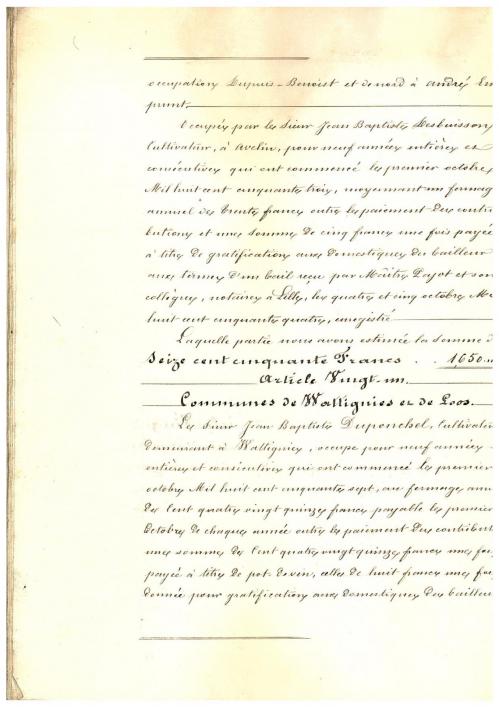 occupation Dupuis-Benoist et de nord à andré Em
prunt.
Occupée par le Sieur Jean Baptiste Desbuisson
Cultivateur, à Avelin, pour neuf années entières et
consécutives qui ont commencé le premier octobre
Mil huit cent cinquante trois, moyennant un fermage
annuel de trente francs outre le paiement des contri
butions et une somme de cinq francs une fois payée
à titre de gratification aux domestiques du bailleur
aux termes d'un bail reçu par Maître Pajot et son
collègue, notaires à Lille, les quatre et cinq octobre Mil
huit cent cinquante quatre, enregistré
Laquelle partie nous avons estimée la somme d
Seize cent cinquante Francs . . 1,650.
Article Vingt-un.
Communes de Wattignies et de Loos.
Le Sieur Jean Baptiste Duponchel, Cultivateur
demeurant à Wattignies, occupe pour neuf années
entières et consécutives qui ont commencé le premier
octobre Mil huit cent cinquante sept, au fermage ann
de Cent quatre vingt quinze francs payable le premier
Octobre de chaque année outre le paiement des contribut
une somme de Cent quatre vingt quinze francs une foi
payée à titre de pot de vin, celle de huit francs une foi
donnée pour gratification aux domestiques du bailleur